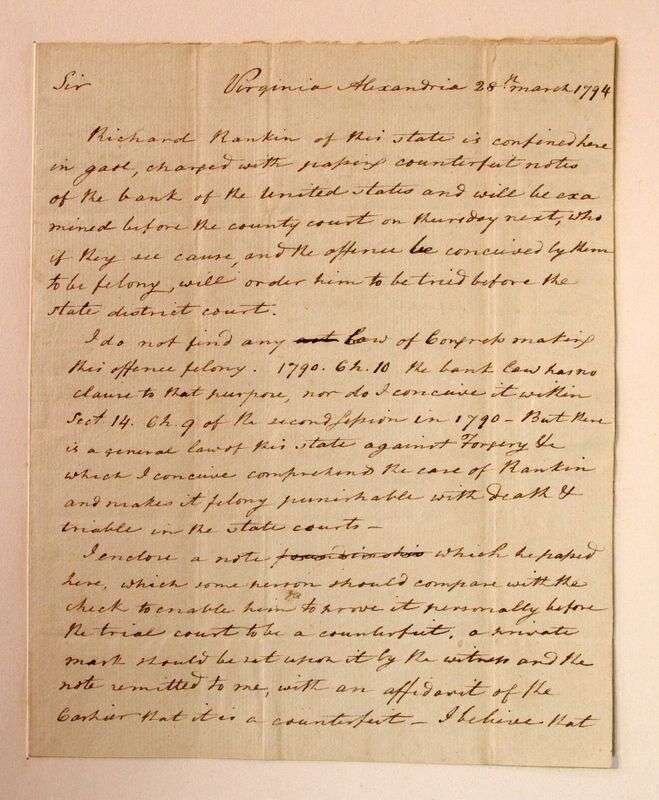 Sir Virginia Alexandria 28th march 1794
Richard Rankin of this state is confined here
in gaol, charged with passing counterfeit notes
of the bank of the United States and will be exa
mined before the county court on thursday next, who
if they see cause, and the offence be conceived by them
to be felony, will order him to be tried before the
state district court.
I do not find any act law of Congress making
this offence felony. 1790. Ch. 10 the bank law has no
clause to that purpose, nor do I conceive it within
Sect 14. Ch. 9 of the second session in 1790 - But there
is a general law of this state against Forgery &c
which I conceive comprehends the case of Rankin
and makes it felony punishable with death &
triable in the state courts -
I enclose a note which he passed
here, which some person should compare with the
check to enable him to prove it personally before
the trial court to be a counterfeit. a private
mark should be set upon it by the witness and the
note remitted to me, with an affidavit of the
Cashier that it is a counterfeit - I believe that